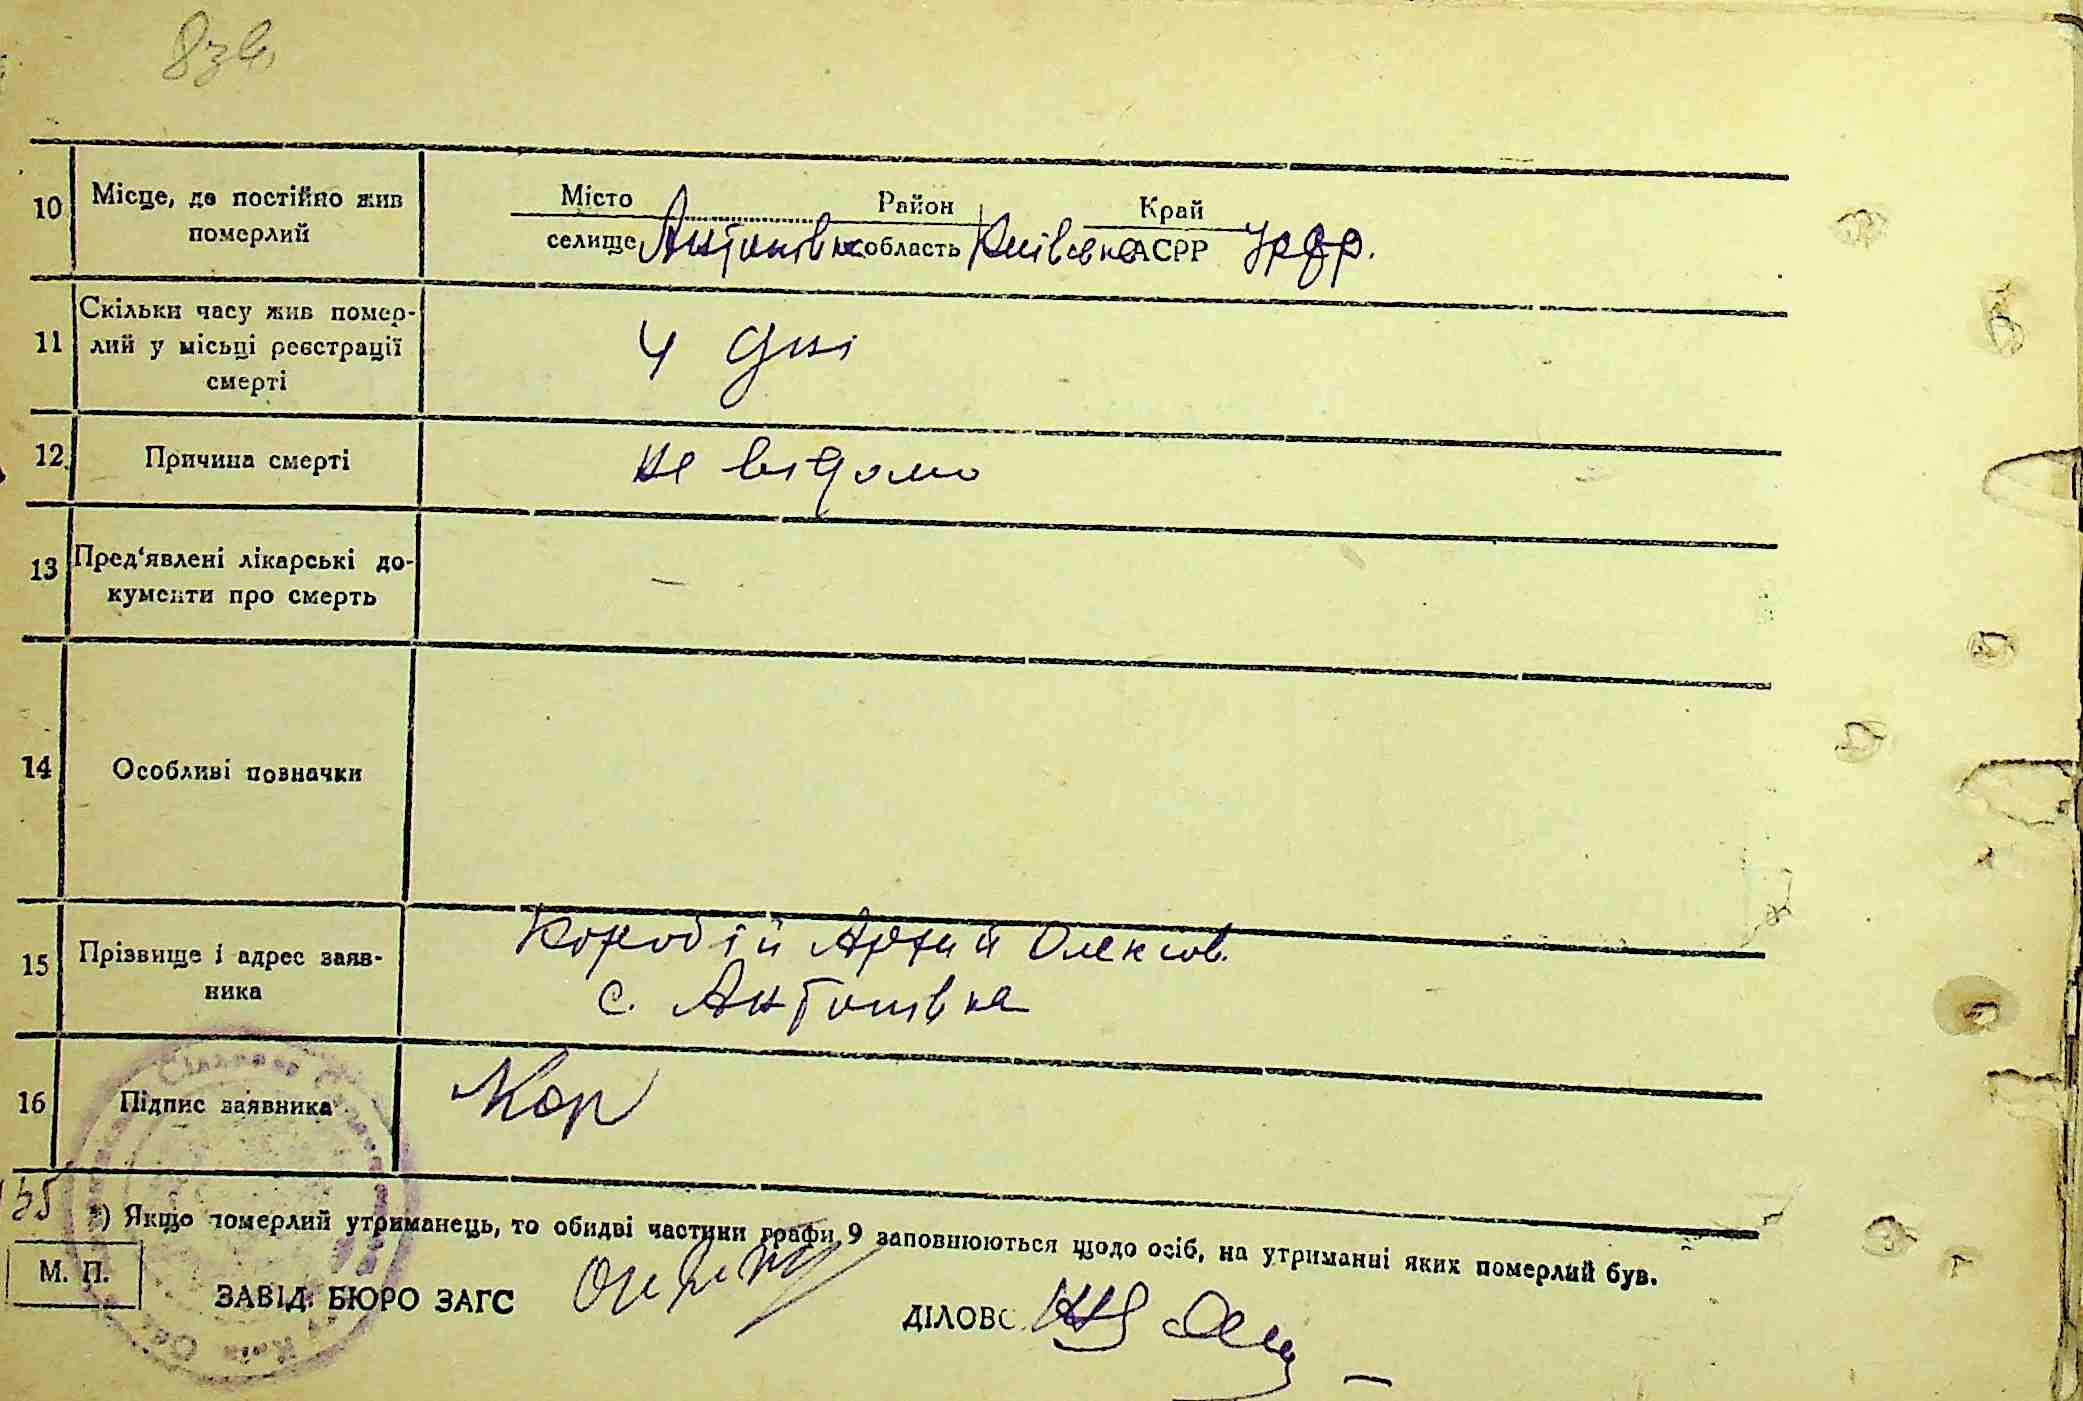 83
10 Місце, де постійно жив Місто Район Край
померлий селище Антонівка область Київська АСРР УРСР.
11 Скільки часу жив помер-
лий у місьці реєстрації 4 дні
смерті
12 Причина смерті не відомо
13 Пред'явлені лікарські до- —
кументи про смерть
14 Особливі позначки
15 Прізвище і адрес заяв- Коробій Артий Олексов.
ника с. Антонівка
16 Підпис заявника Кор
35 *) Якщо померлий утриманець, то обидві частини графи 9 заповнюються щодо осіб, на утриманні яких померлий був.
М. П.
ЗАВІД. БЮРО ЗАГС
ДІЛОВС